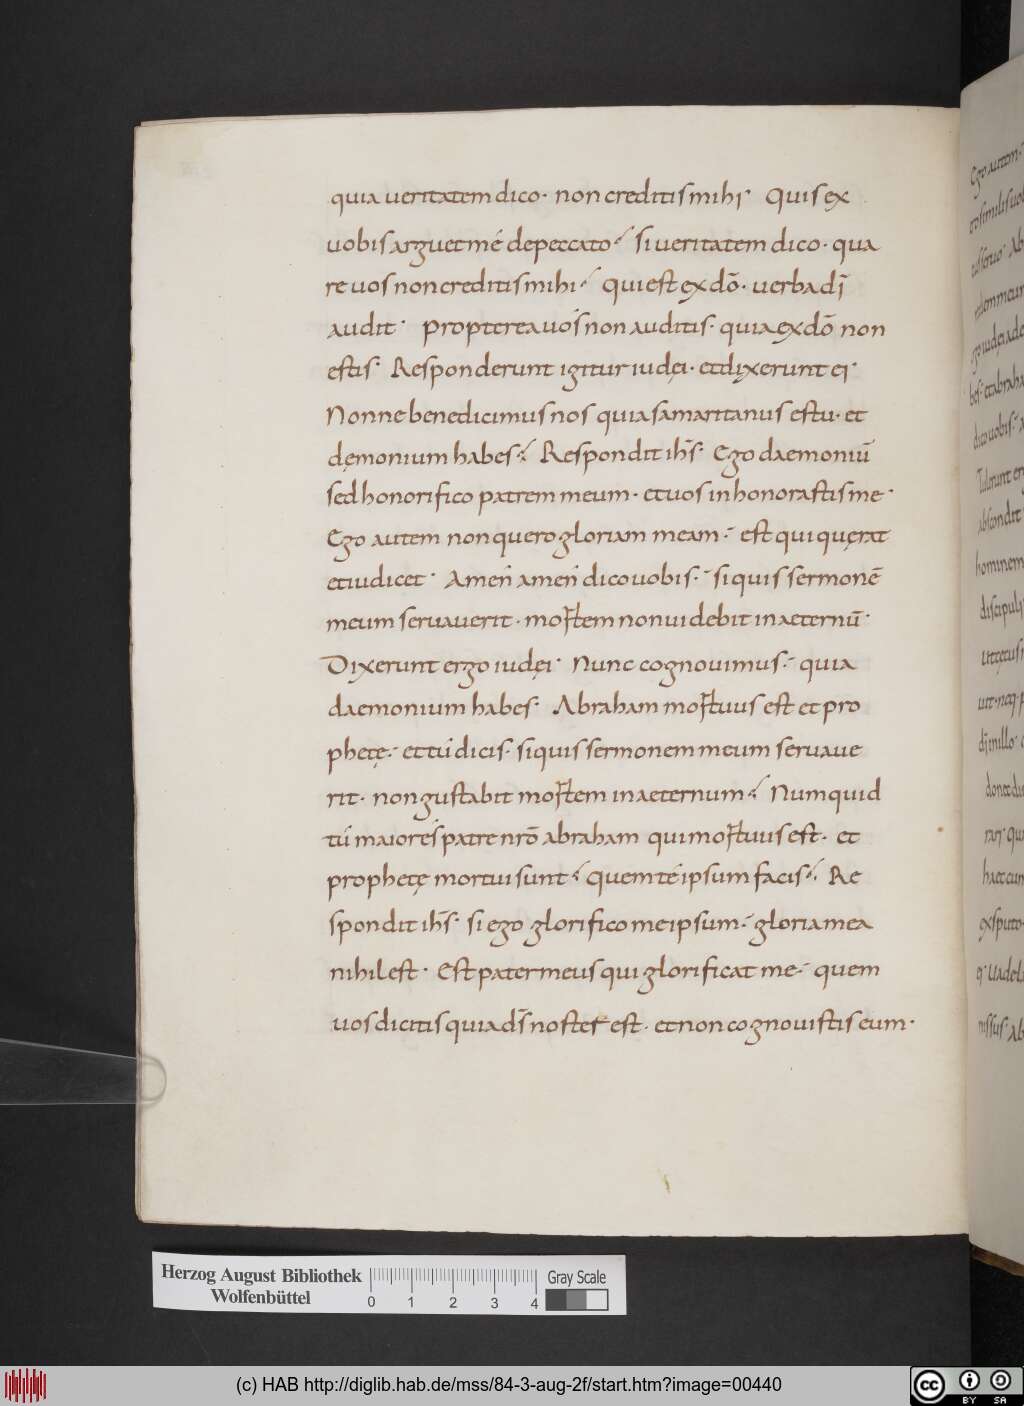 quia ueritatem dico· non creditis mihi· Quis ex
uobis arguet mé de peccato· si ueritatem dico· qua
re uos non creditis mihi· qui est ex dō· uerba dī
audit· Propterea uos non auditis· quia ex dō non
estis· Responderunt igitur iudęi· et dixerunt ei·
Nonne benedicimus nos quia samaritanus es tu· et
dęmonium habes· Respondit ihs̄· Ego daemoniū
sed honorifico patrem meum· et uos inhonorastis me·
Ego autem non quero gloriam meam· est qui quęrat
et iudicet· Amen amen dico uobis· si quis sermonē
meum seruauerit· mortem non uidebit in aeternū·
Dixerunt ergo iudęi· Nunc cognouimus· quia
daemonium habes· Abraham mortuus est et pro
phetę· et tú dicis· si quis sermonem meum seruaue
rit· non gustabit mortem in aeternum· Numquid
tú maior es patre nrō abraham qui mortuus est· et
prophetę mortui sunt· quem té ipsum facis· Re
spondit ihs̄· si ego glorifico me ipsum· gloria mea
nihil est· Est pater meus qui glorificat me· quem
uos dicitis quia ds̄ noster est· et non cognouistis eum·
Herzog August Bibliothek
Wolfenbüttel
0 1 2 3 4
Gray Scale
(c) HAB http://diglib.hab.de/mss/84-3-aug-2f/start.htm?image=00440
cc BY SA